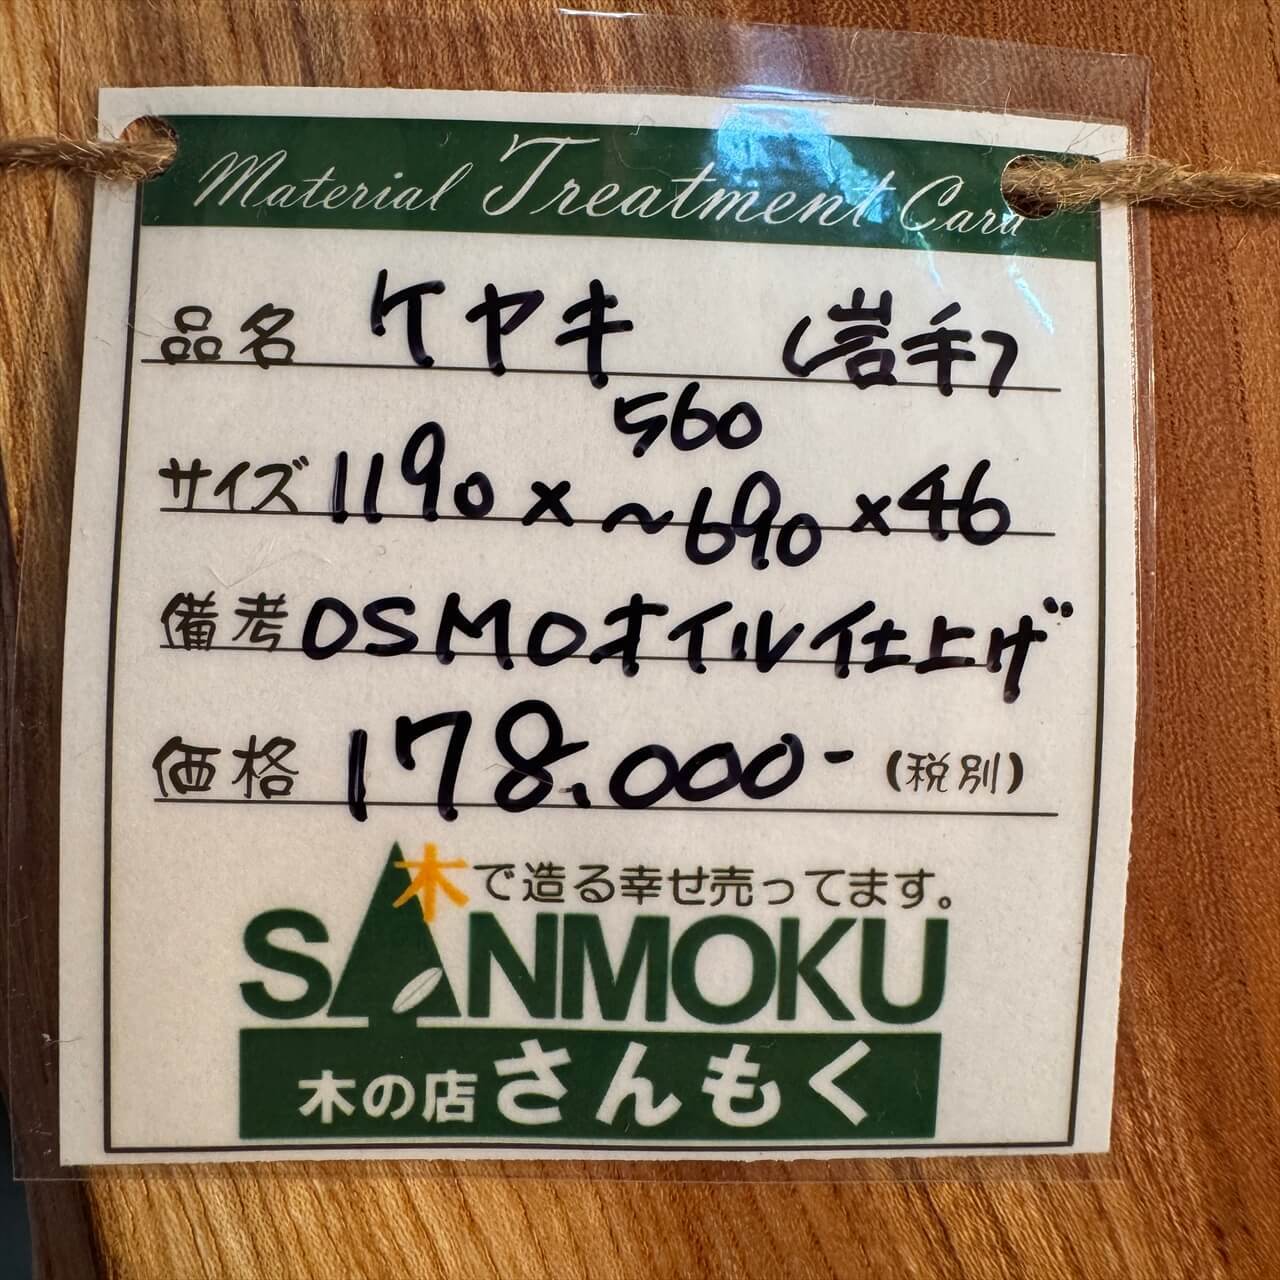 Material Treatment Card
品名 ケヤキ (岩手)
サイズ 1190 × 560 ~690 × 46
備考 OSMOオイル仕上げ
価格 178.000- (税別)
木で造る幸せ売ってます。
SANMOKU
木の店 さんもく